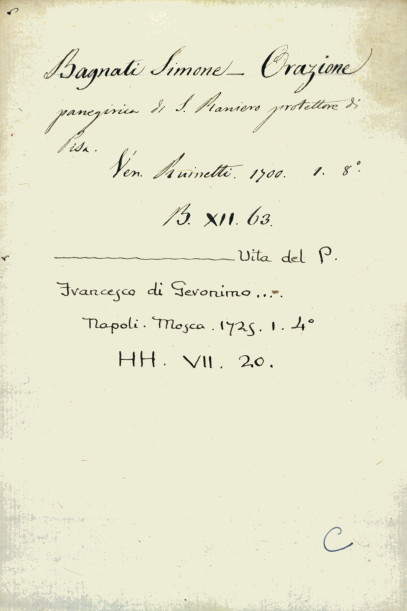 Bagnati Simone — Orazione
panegirica di S. Raniero protettore di
Pisa.
Ven. Ruinetti. 1700. 1. 8°.
B. XII. 63.
———— Vita del P.
Francesco di Geronimo ....
Napoli. Mosca. 1725. 1. 4°
HH. VII. 20.
C